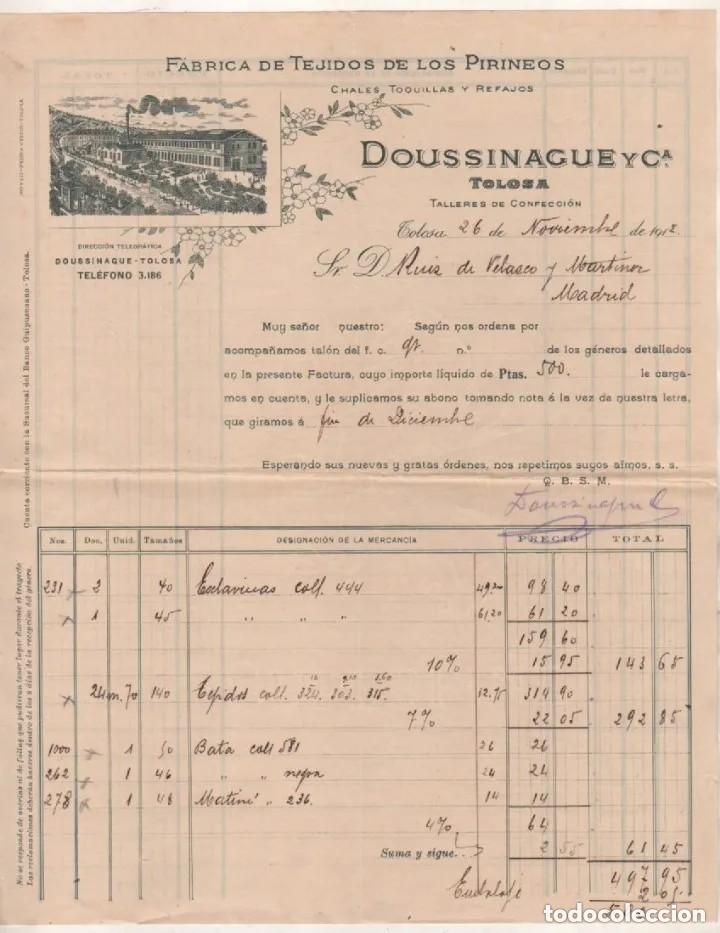 FÁBRICA DE TEJIDOS DE LOS PIRINEOS
CHALES, TOQUILLAS Y REFAJOS
DOUSSINAGUE Y Cª
TOLOSA
TALLERES DE CONFECCIÓN
DIRECCIÓN TELEGRÁFICA
DOUSSINAGUE-TOLOSA
TELÉFONO 3.186
Tolosa 26 de Noviembre de 1912
Sr. D. Ruiz de Velasco y Martinez
Madrid
Muy señor nuestro: Según nos ordena por
acompañamos talón del f. c. gv. n.º de los géneros detallados
en la presente Factura, cuyo importe líquido de Ptas. 500. le carga-
mos en cuenta, y le suplicamos su abono tomando nota á la vez de nuestra letra,
que giramos á fin de Diciembre
Esperando sus nuevas y gratas órdenes, nos repetimos suyos afmos. s. s.
Q. B. S. M.
Cuenta corriente con la Sucursal del Banco Guipuzcoano - Tolosa.
No se responde de averías ni de faltas que pudieran tener lugar durante el trayecto
Las reclamaciones deberán hacerse dentro de los 8 días de la recepción del género.
Nos. Doc. Unid. Tamaños DESIGNACIÓN DE LA MERCANCÍA PRECIO TOTAL
231 2 40 Esclavinas coll. 444 49,20 98 40
1 45 " " " 61,20 61 20
159 60
10% 15 95 143 65
24 m. 70 140 Tejidos coll. 324. 303. 315. 12.95 319 90
7% 22 05 292 85
1000 1 50 Bata coll 581 26 26
262 1 46 " " negra 24 24
278 1 48 Matiné " 236. 14 14
64
4%
Suma y sigue. 2 55 61 45
497 95
Embalaje 2 05
todocoleccion.net